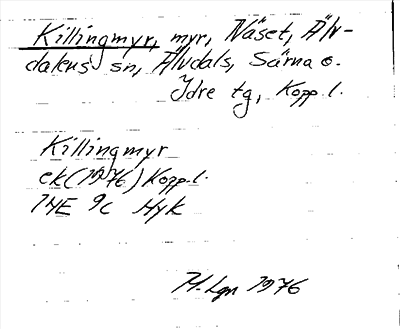 Killingmyr, myr, Näset, Älv-
dalens sn, Älvdals, Särna o.
Idre tg, Kopp. l.
Killingmyr
ek (1976) Kopp. l.
14E 9c Hyk
M. Lgn 1976